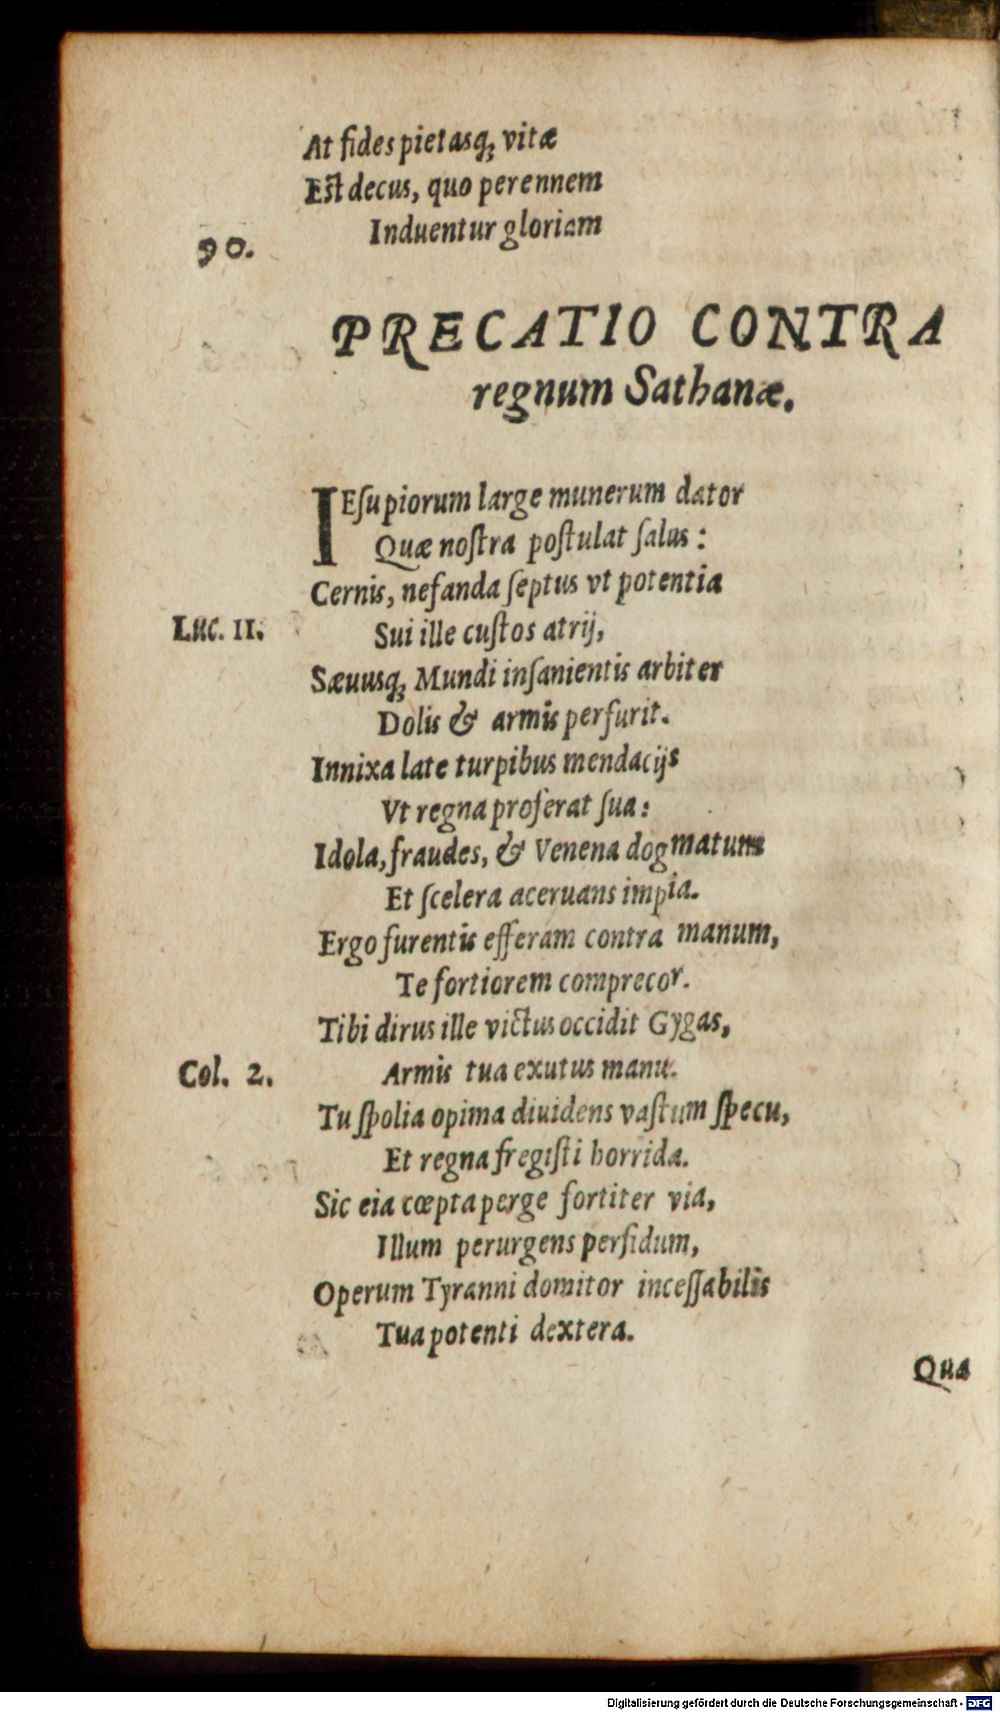 At fides pietasqꝫ vitæ
Est decus, quo perennem
Induentur gloriam
90.
PRECATIO CONTRA
regnum Sathanæ.
IEſu piorum large munerum dator
Quæ noſtra poſtulat ſalus :
Cernis, nefanda ſeptus vt potentia
Luc. 11.
Sui ille cuſtos atrij,
Sæuusqꝫ Mundi inſanientis arbiter
Dolis & armis perfurit.
Innixa late turpibus mendacijs
Vt regna proferat ſua :
Idola, fraudes, & Venena dogmatum
Et ſcelera aceruans impia.
Ergo furentis efferam contra manum,
Te fortiorem comprecor.
Tibi dirus ille victus occidit Gygas,
Col. 2.
Armis tua exutus manu.
Tu ſpolia opima diuidens vaſtum ſpecu,
Et regna fregiſti horrida.
Sic eia cœpta perge fortiter via,
Illum perurgens perfidum,
Operum Tyranni domitor inceſſabilis
Tua potenti dextera.
Qua
Digitalisierung gefördert durch die Deutsche Forschungsgemeinschaft - DFG